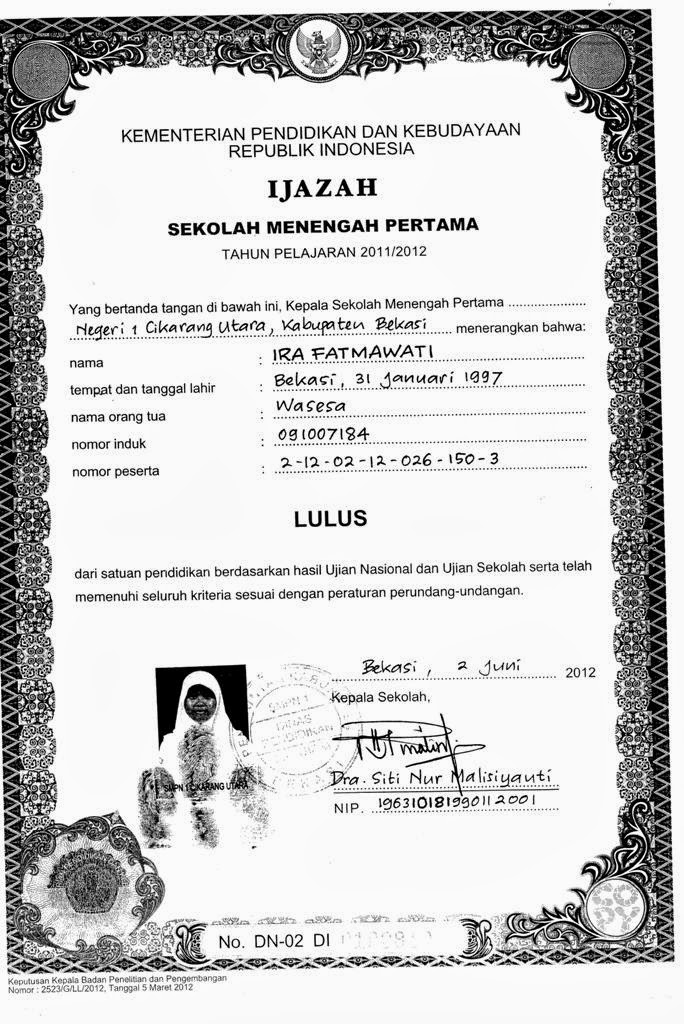 KEMENTERIAN PENDIDIKAN DAN KEBUDAYAAN
REPUBLIK INDONESIA
IJAZAH
SEKOLAH MENENGAH PERTAMA
TAHUN PELAJARAN 2011/2012
Yang bertanda tangan di bawah ini, Kepala Sekolah Menengah Pertama
Negeri 1 Cikarang Utara, Kabupaten Bekasi menerangkan bahwa:
nama : IRA FATMAWATI
tempat dan tanggal lahir : Bekasi, 31 Januari 1997
nama orang tua : Wasesa
nomor induk : 091007184
nomor peserta : 2-12-02-12-026-150-3
LULUS
dari satuan pendidikan berdasarkan hasil Ujian Nasional dan Ujian Sekolah serta telah
memenuhi seluruh kriteria sesuai dengan peraturan perundang-undangan.
Bekasi, 2 Juni 2012
Kepala Sekolah,
SMPN 1
DINAS
SMPN 1 CIKARANG UTARA
Dra. Siti Nur Malisiyauti
NIP. 196310181990112001
No. DN-02 DI
Keputusan Kepala Badan Penelitian dan Pengembangan
Nomor : 2523/G/LL/2012, Tanggal 5 Maret 2012